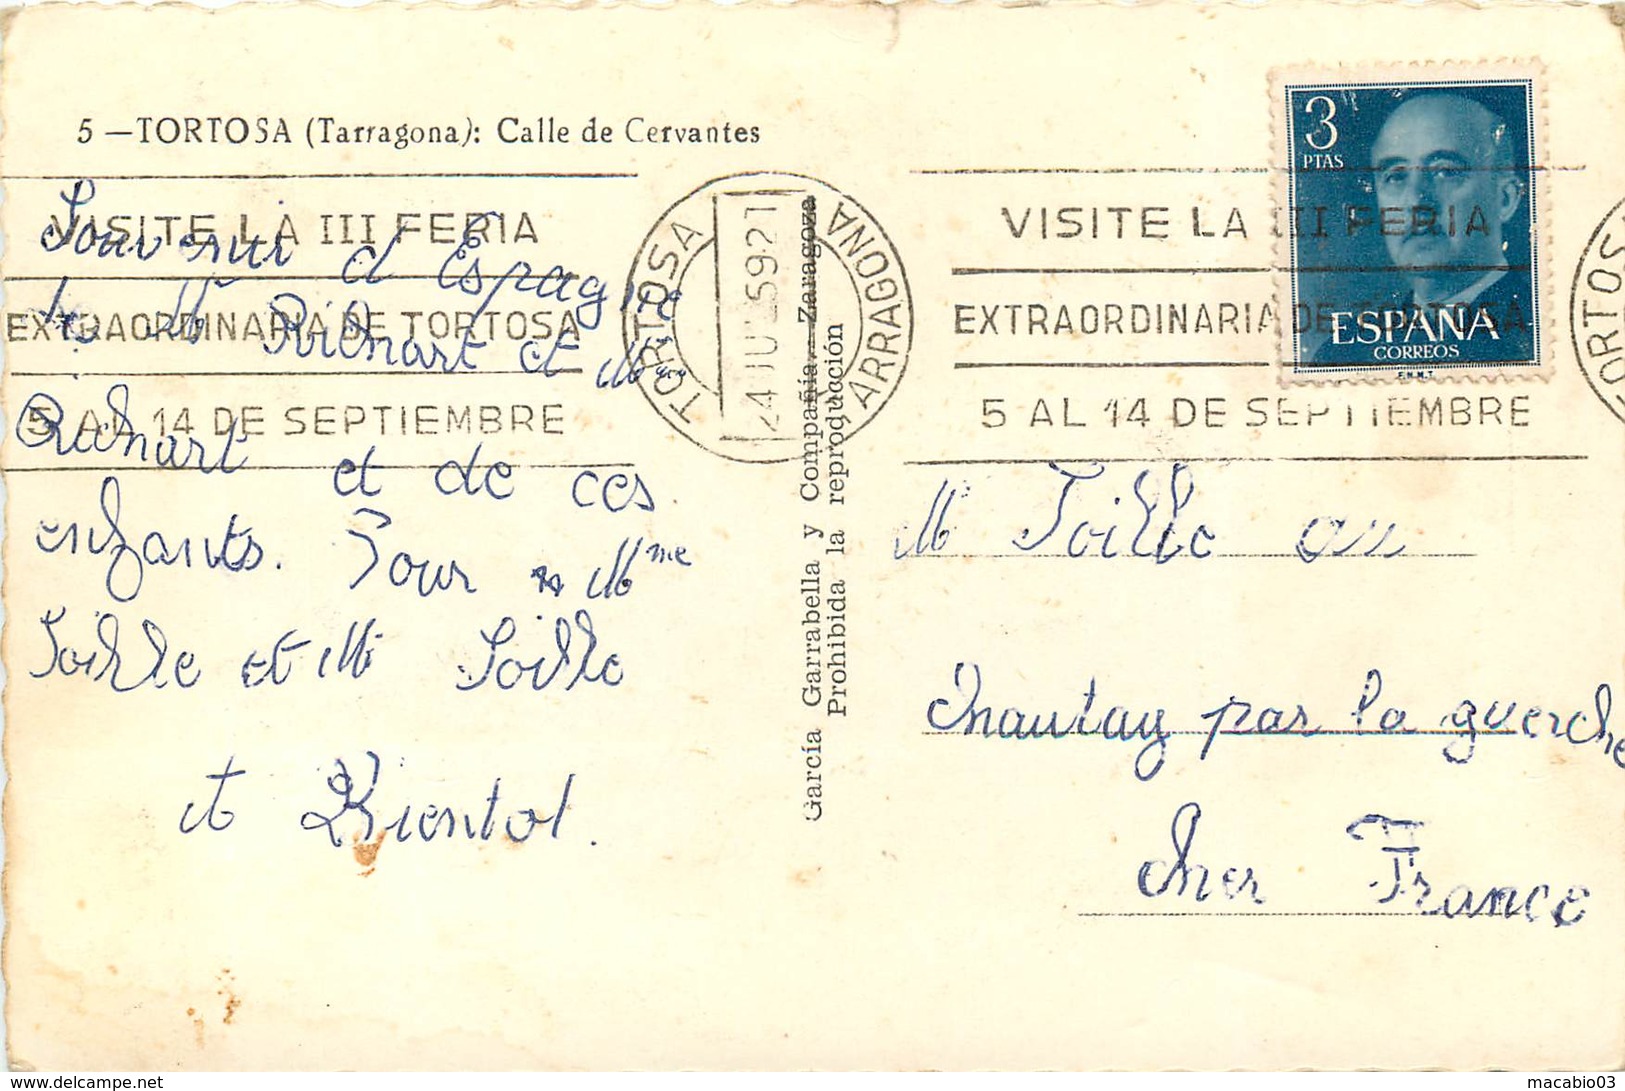 5 — TORTOSA (Tarragona): Calle de Cervantes
VISITE LA III FERIA
EXTRAORDINARIA DE TORTOSA
5 AL 14 DE SEPTIEMBRE
TORTOSA
TARRAGONA
59·21
VISITE LA III FERIA
EXTRAORDINARIA DE TORTOSA
5 AL 14 DE SEPTIEMBRE
TORTOSA
3
PTAS
ESPAÑA
CORREOS
F.N.M.T.
García Garrabella y Compañía.—Zaragoza
Prohibida la reproducción
Souvenir d Espagne
de M Richart et Mme
Richart et de ces
enfants. Pour Mme
Toille et M Toille
et Bientot.
M Toille au
nautay par la guerche
Cher France
www.delcampe.net
macabio03